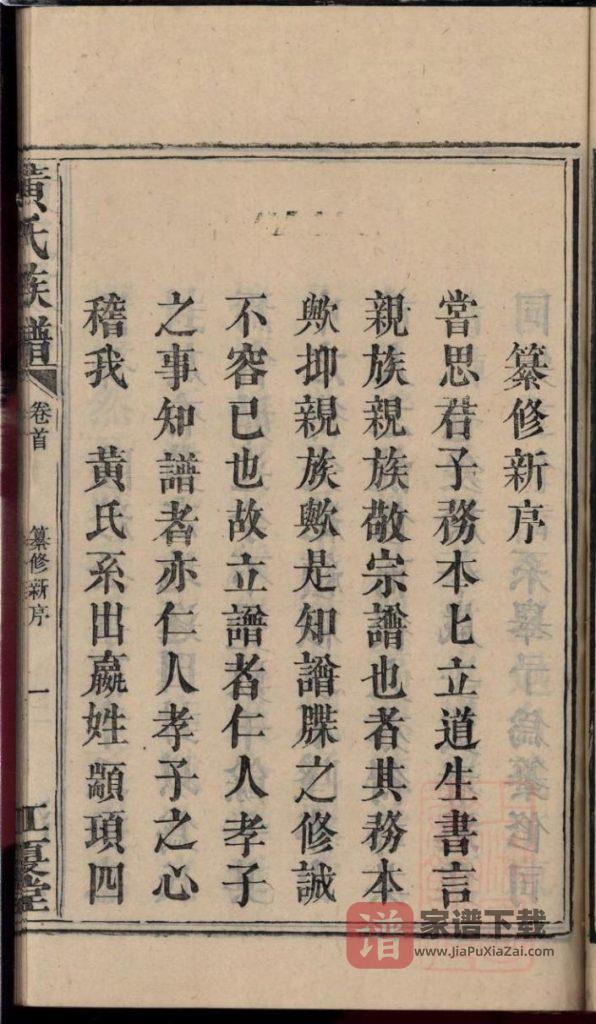 纂修新序
當思君子務本匕立道生書言
親族親族敬宗譜也者其務本
歟抑親族歟是知譜牒之修誠
不容已也故立譜者仁人孝子
之事知譜者亦仁人孝子之心
稽我 黃氏系出嬴姓顓頊四
黃氏族譜
卷首
纂修新序
一
江夏堂
谱
家谱下载
www.JiaPuXiaZai.com